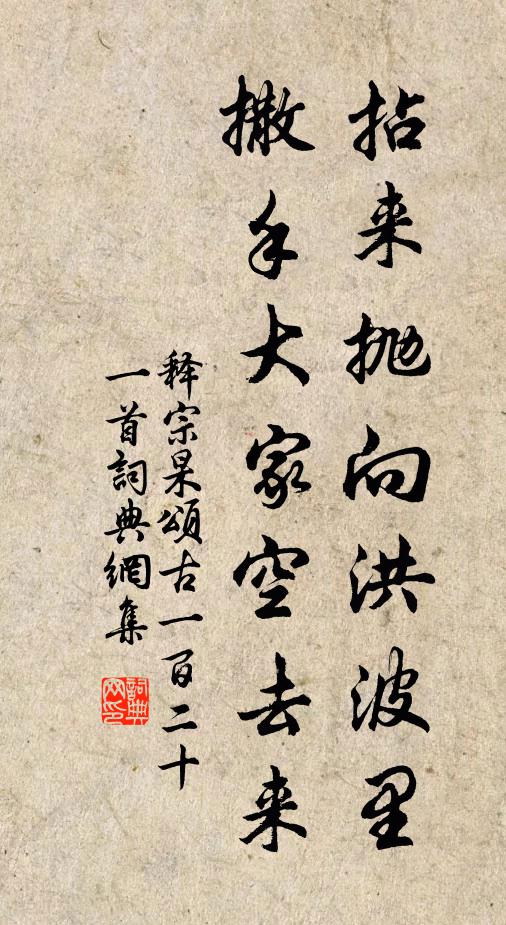 拈来抛向洪波里
撒手大家空去来
释宗杲颂古一百二十
一首詞典網集
詞典
网印